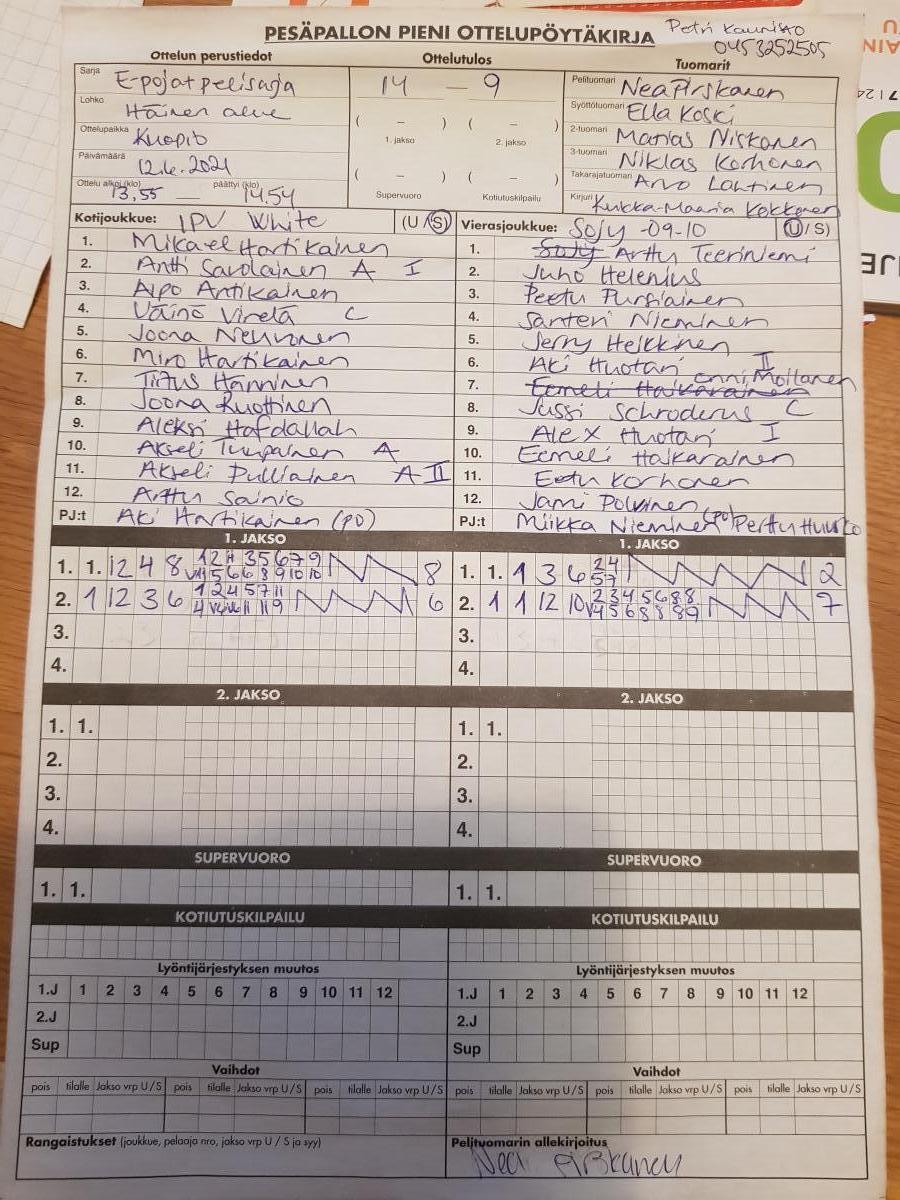 PESÄPALLON PIENI OTTELUPÖYTÄKIRJA
Petri Kaunisto
0453252505
Ottelun perustiedot
Ottelutulos
Tuomarit
Sarja E-pojat pelisarja
Lohko Itäinen alue
Ottelupaikka Kuopio
Päivämäärä 12.6.2021
Ottelu alkoi (klo) 13,55 — päättyi (klo) 14.54
14 — 9
( – ) ( – )
1. jakso 2. jakso
( – ) ( – )
Supervuoro Kotiutuskilpailu
Pelituomari Nea Pirskanen
Syöttötuomari Ella Koski
2-tuomari Matias Niskanen
3-tuomari Niklas Korhonen
Takarajatuomari Arvo Lahtinen
Kirjuri Kukka-Maaria Kokkonen
Kotijoukkue: IPV White (U/S)
1. Mikael Hartikainen
2. Antti Savolainen A I
3. Aipo Antikainen
4. Väinö Virelä C
5. Joona Neuvonen
6. Miro Hartikainen
7. Titus Hänninen
8. Joona Ruottinen
9. Aleksi Hafdallah
10. Akseli Turpainen A
11. Akseli Pulliainen A II
12. Arttu Sainio
PJ:t Aki Hartikainen (PO)
Vierasjoukkue: SoJy -09-10 (U/S)
1. SoJy Arttu Teeriniemi
2. Juho Helenius
3. Peetu Pursiainen
4. Santeri Nieminen
5. Jerry Heikkinen
6. Aki Huotari II
7. Eemeli Haikarainen Onni Moilanen
8. Jussi Schroderus C
9. Alex Huotari I
10. Eemeli Haikarainen
11. Eetu Korhonen
12. Jami Polvinen
PJ:t Miikka Nieminen (PO) Perttu Huusko
1. JAKSO
1. 1. 12 4 8
8
2. 1 12 3 6
6
3.
4.
1. JAKSO
1. 1. 1 3 6 2 4
5 7
2
2. 1 1 12 10 2 3 4 5 6 8 8
7
3.
4.
2. JAKSO
1. 1.
2.
3.
4.
2. JAKSO
1. 1.
2.
3.
4.
SUPERVUORO
1. 1.
SUPERVUORO
1. 1.
KOTIUTUSKILPAILU
KOTIUTUSKILPAILU
Lyöntijärjestyksen muutos
1.J 1 2 3 4 5 6 7 8 9 10 11 12
2.J
Sup
Lyöntijärjestyksen muutos
1.J 1 2 3 4 5 6 7 8 9 10 11 12
2.J
Sup
Vaihdot
pois tilalle Jakso vrp U/S pois tilalle Jakso vrp U/S pois tilalle Jakso vrp U/S
Vaihdot
pois tilalle Jakso vrp U/S pois tilalle Jakso vrp U/S pois tilalle Jakso vrp U/S
Rangaistukset (joukkue, pelaaja nro, jakso vrp U / S ja syy)
Pelituomarin allekirjoitus
Nea Pirskanen